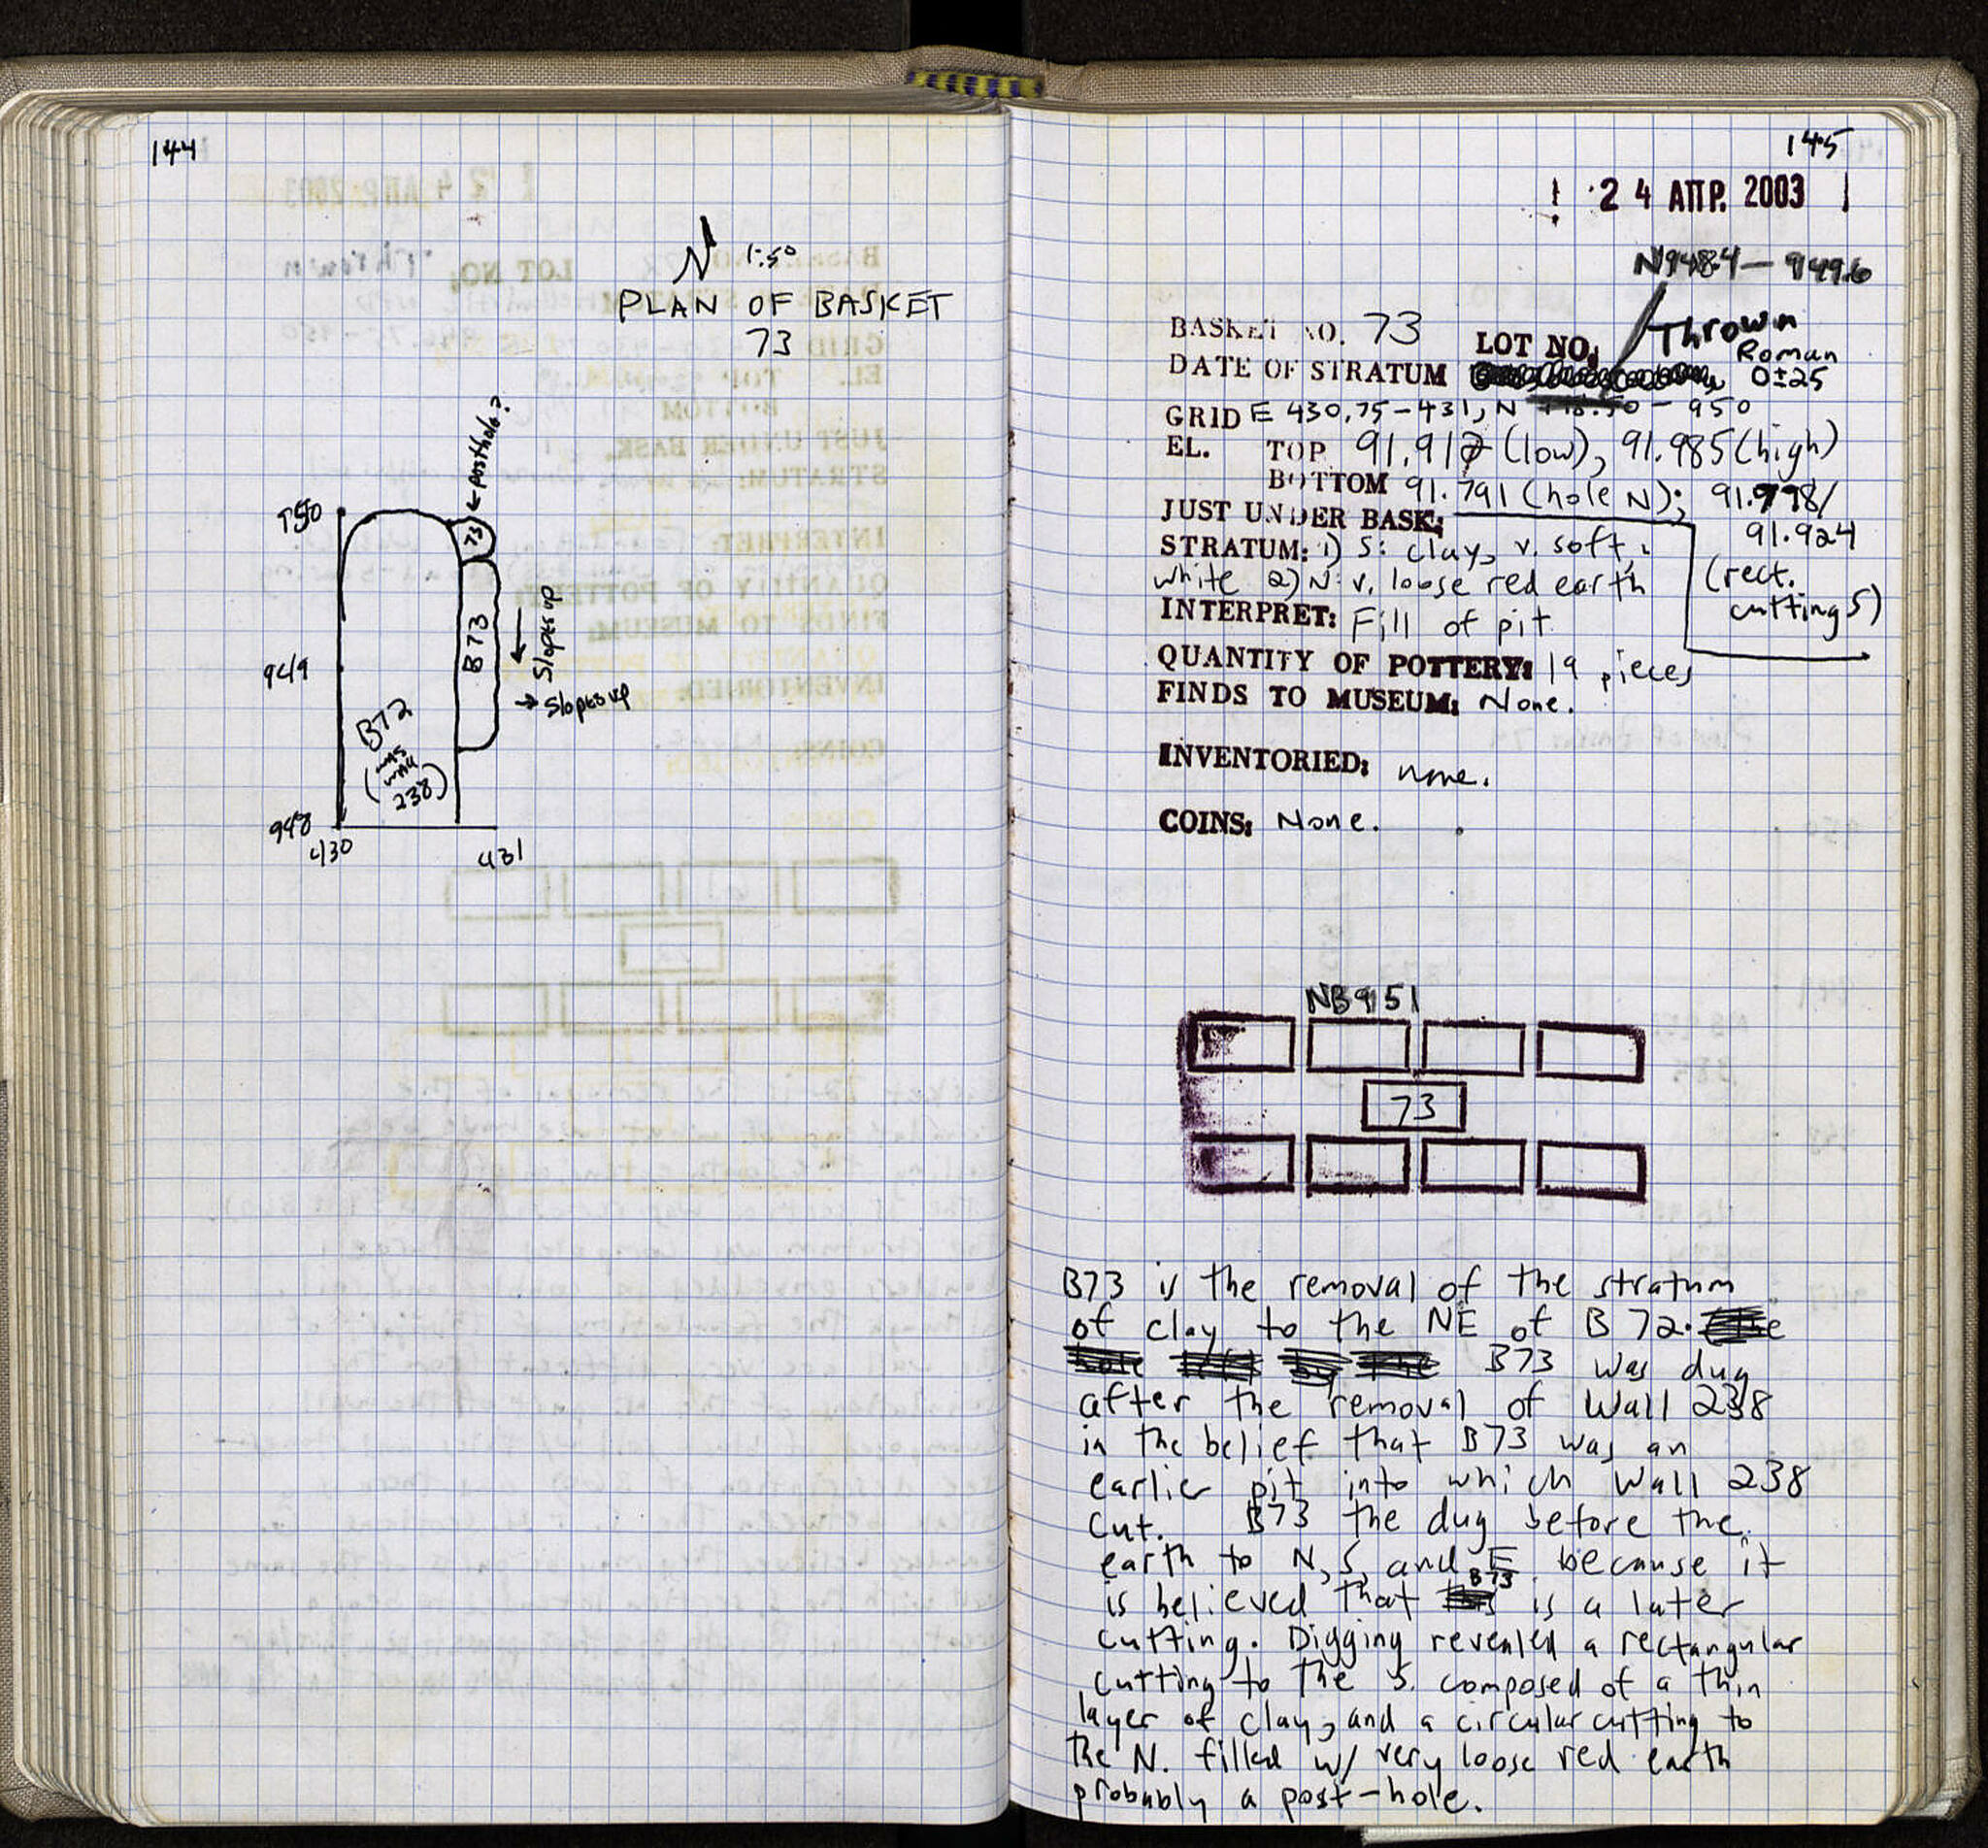 144
N 1:50
PLAN OF BASKET
73
← posthole?
950
73
B73
← slopes up
949
→ slopes up
B72
(was
wall
238)
948
430 431
145
! 24 ΑΠΡ. 2003
N948.4 - 949.6
BASKET NO. 73 LOT NO. Thrown
DATE OF STRATUM Roman 0±25
GRID E 430.75-431, N - 950
EL. TOP 91.917 (low), 91.985 (high)
BOTTOM 91.791 (hole N); 91.998/
91.924
(rect.
cutting S)
JUST UNDER BASK:
STRATUM: 1) S: clay, v. soft,
white 2) N: v. loose red earth
INTERPRET: Fill of pit
QUANTITY OF POTTERY: 19 pieces
FINDS TO MUSEUM: None.
INVENTORIED: none.
COINS: None.
NB951
73
B73 is the removal of the stratum
of clay to the NE of B 72.
B73 was dug
after the removal of Wall 238
in the belief that B73 was an
earlier pit into which Wall 238
cut. B73 the dug before the
earth to N, S, and E because it
is believed that B73 is a later
cutting. Digging revealed a rectangular
cutting to the S. composed of a thin
layer of clay, and a circular cutting to
the N. filled w/ very loose red earth
probably a post-hole.